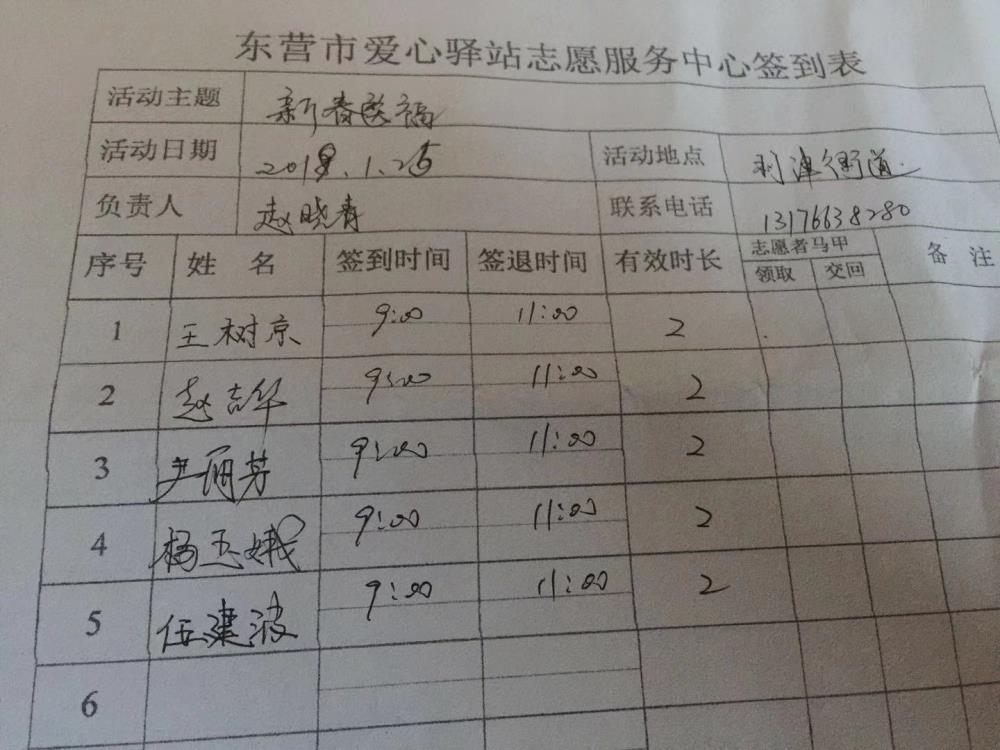 东营市爱心驿站志愿服务中心签到表
活动主题 新春送福
活动日期 2018.1.25 活动地点 利津街道
负责人 赵晓青 联系电话 13176638280
序号 姓名 签到时间 签退时间 有效时长 志愿者马甲 备注
领取 交回
1 王树京 9:00 11:00 2
2 赵吉华 9:00 11:00 2
3 尹丽芳 9:00 11:00 2
4 杨玉娥 9:00 11:00 2
5 任建波 9:00 11:00 2
6